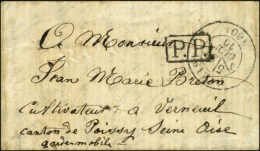 A Monsieur
P.P.
Jean Marie Breton
Cultivateur à Verneuil
canton de Poissy Seine Oise
garde mobile